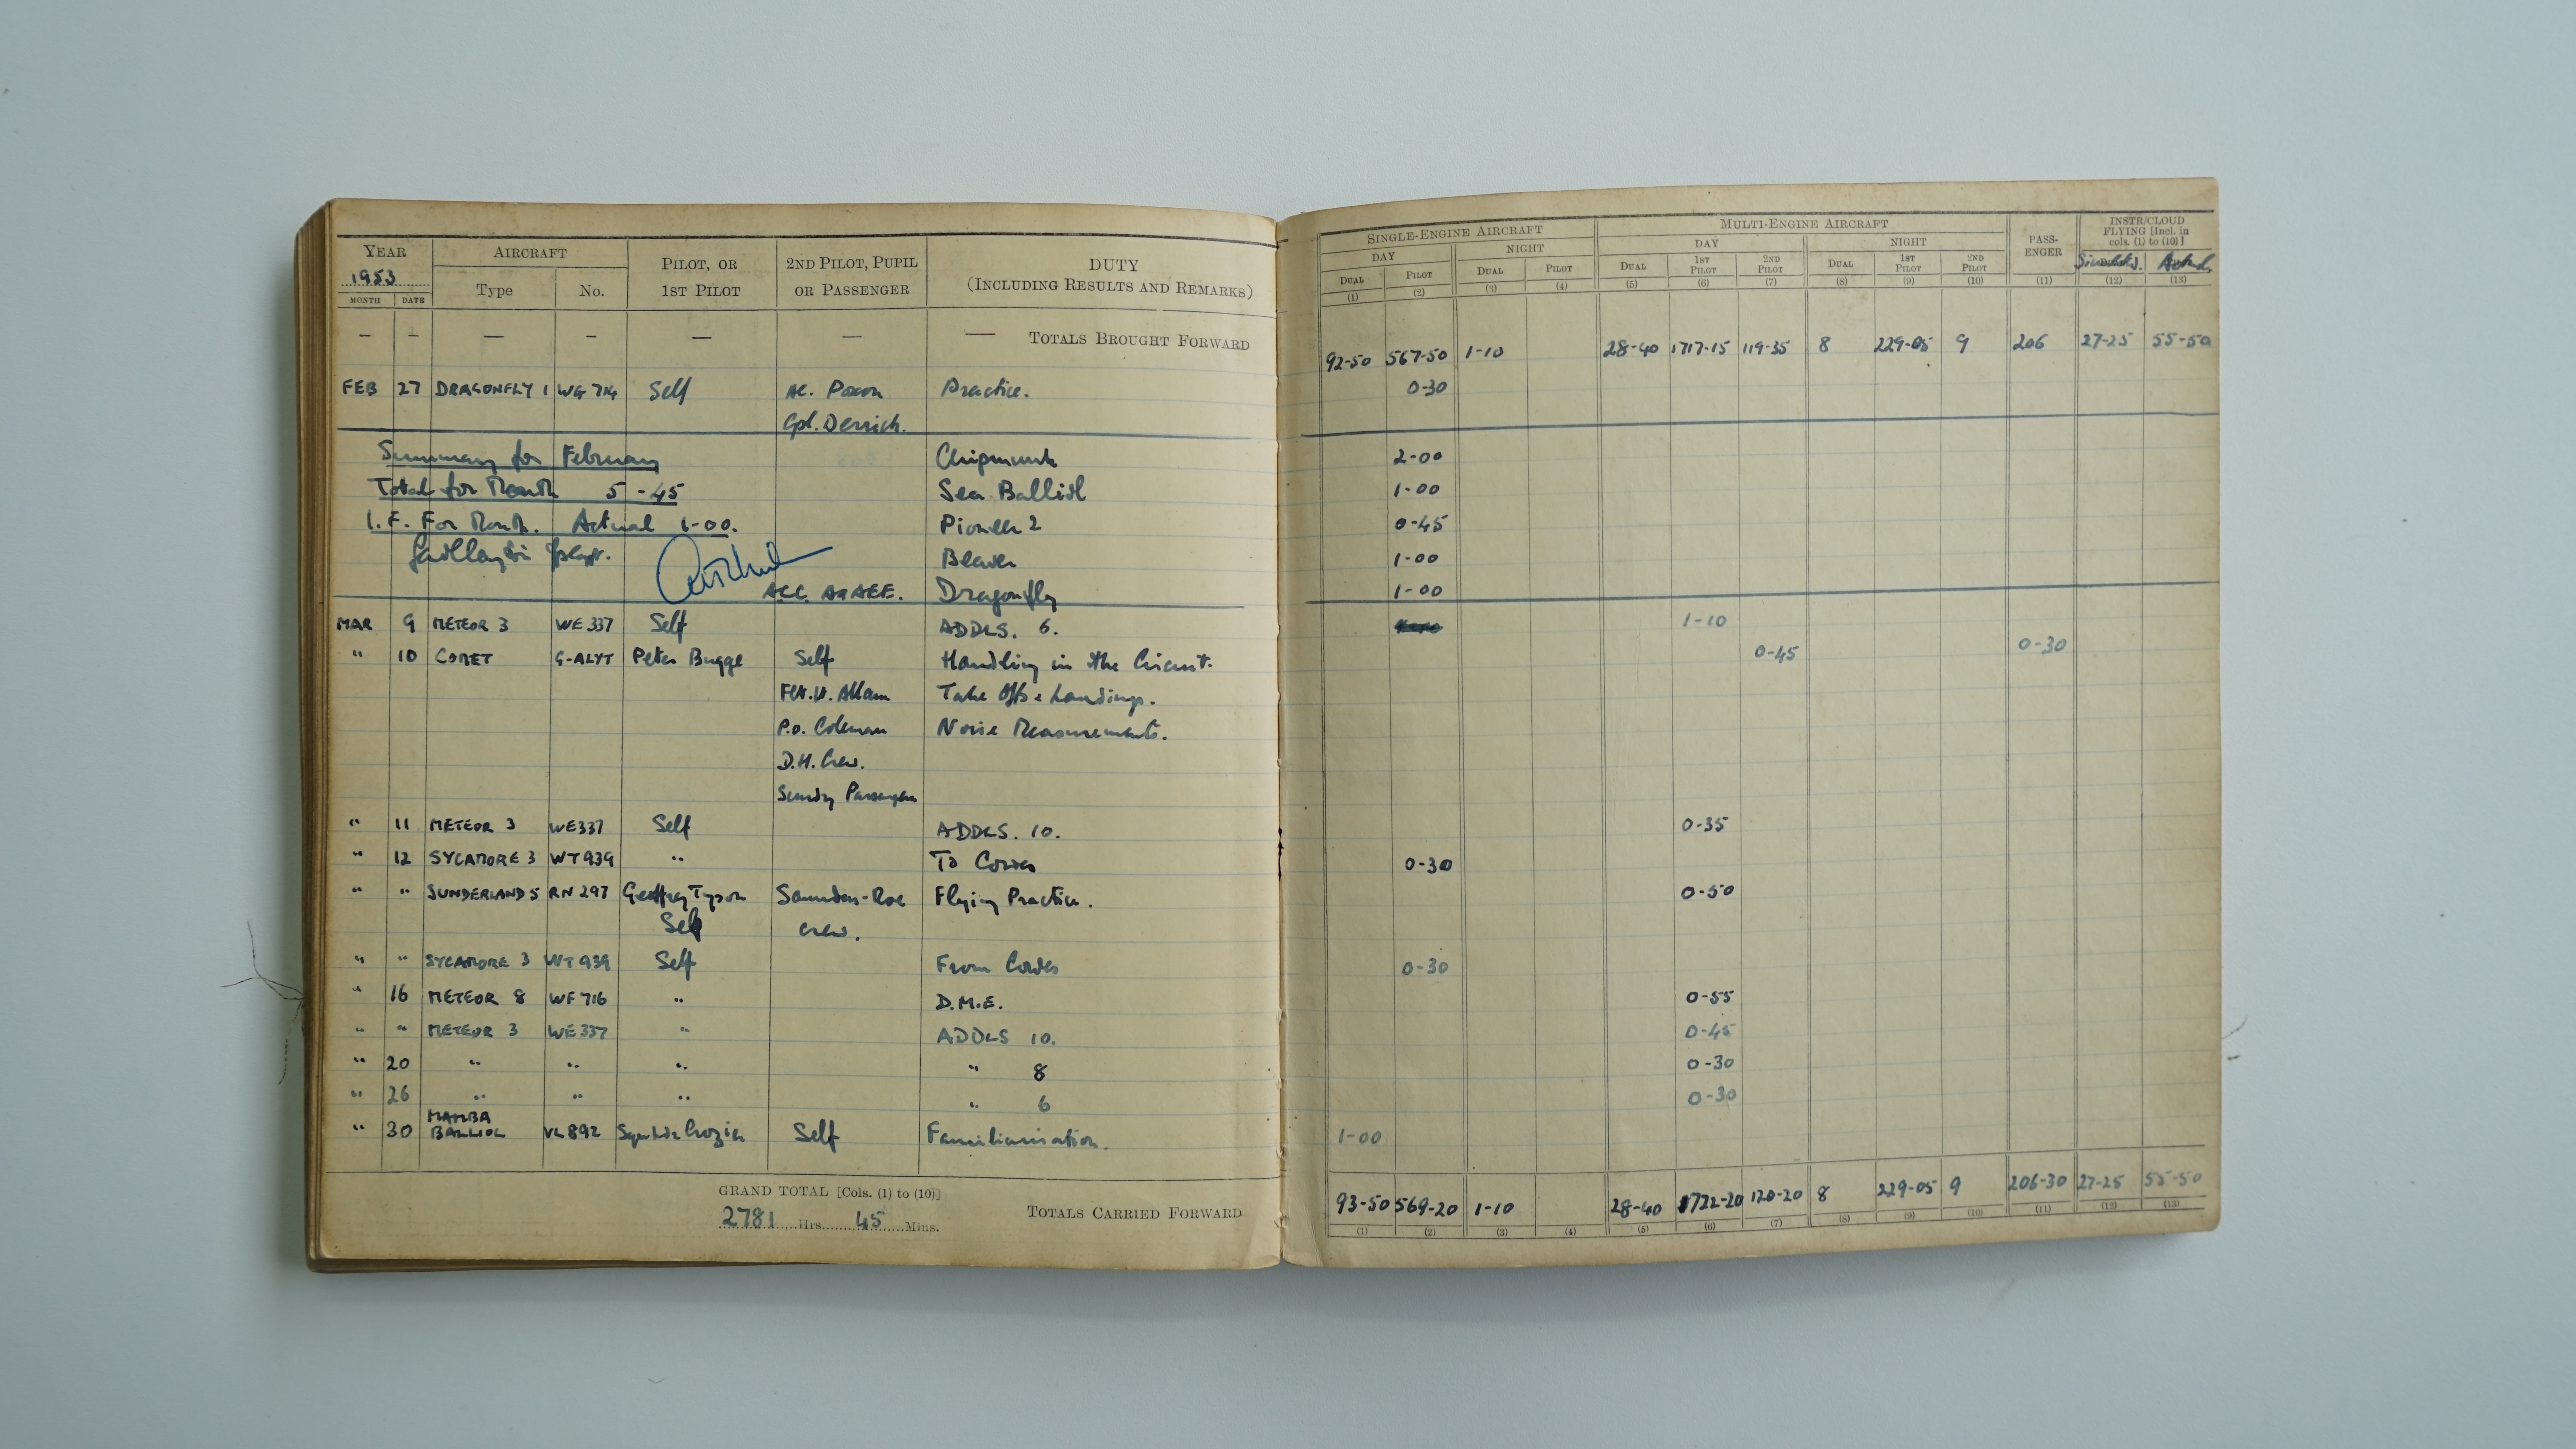 YEAR AIRCRAFT PILOT, OR 2ND PILOT, PUPIL DUTY
1953 Type No. 1ST PILOT OR PASSENGER (INCLUDING RESULTS AND REMARKS)
MONTH DATE
— — — — — — — TOTALS BROUGHT FORWARD
FEB 27 DRAGONFLY 1 WG 714 Self AC. Paxon Practice.
Cpl. Derrick.
Summary for February Chipmunk
Total for Month 5-45 Sea Balliol
I.F. For Month. Actual 1-00. Pioneer 2
Beaver
A.C.C. A&AEE. Dragonfly
MAR 9 METEOR 3 WE 337 Self ADDLS. 6.
" 10 COMET G-ALYT Peter Bugge Self Handling in the Circuit.
Flt. Lt. Allam Take Offs & Landings.
P.O. Coleman Noise Measurements.
D.H. Crew.
Sundry Passengers
" 11 METEOR 3 WE337 Self ADDLS. 10.
" 12 SYCAMORE 3 WT939 " To Cowes
" " SUNDERLAND 5 RN 297 Geoffrey Tyson Saunders-Roe Flying Practice.
Self crew.
" " SYCAMORE 3 WT939 Self From Cowes
" 16 METEOR 8 WF 716 " D.M.E.
" " METEOR 3 WE337 " ADDLS 10.
" 20 " " " " 8
" 26 " " " " 6
" 30 MAMBA BALLIOL VL892 Sqn Ldr Crozier Self Familiarisation.
GRAND TOTAL [Cols. (1) to (10)]
2781 Hrs. 45 Mins. TOTALS CARRIED FORWARD
SINGLE-ENGINE AIRCRAFT MULTI-ENGINE AIRCRAFT PASS-ENGER INSTR/CLOUD FLYING [Incl. in cols. (1) to (10)]
DAY NIGHT DAY NIGHT
DUAL PILOT DUAL PILOT DUAL 1ST PILOT 2ND PILOT DUAL 1ST PILOT 2ND PILOT Simulated. Actual.
(1) (2) (3) (4) (5) (6) (7) (8) (9) (10) (11) (12) (13)
92-50 567-50 1-10 28-40 1717-15 119-35 8 229-05 9 206 27-25 55-50
0-30
2-00
1-00
0-45
1-00
1-00
1-10
0-45 0-30
0-35
0-30
0-50
0-30
0-55
0-45
0-30
0-30
1-00
93-50 569-20 1-10 28-40 1722-20 120-20 8 229-05 9 206-30 27-25 55-50
(1) (2) (3) (4) (5) (6) (7) (8) (9) (10) (11) (12) (13)